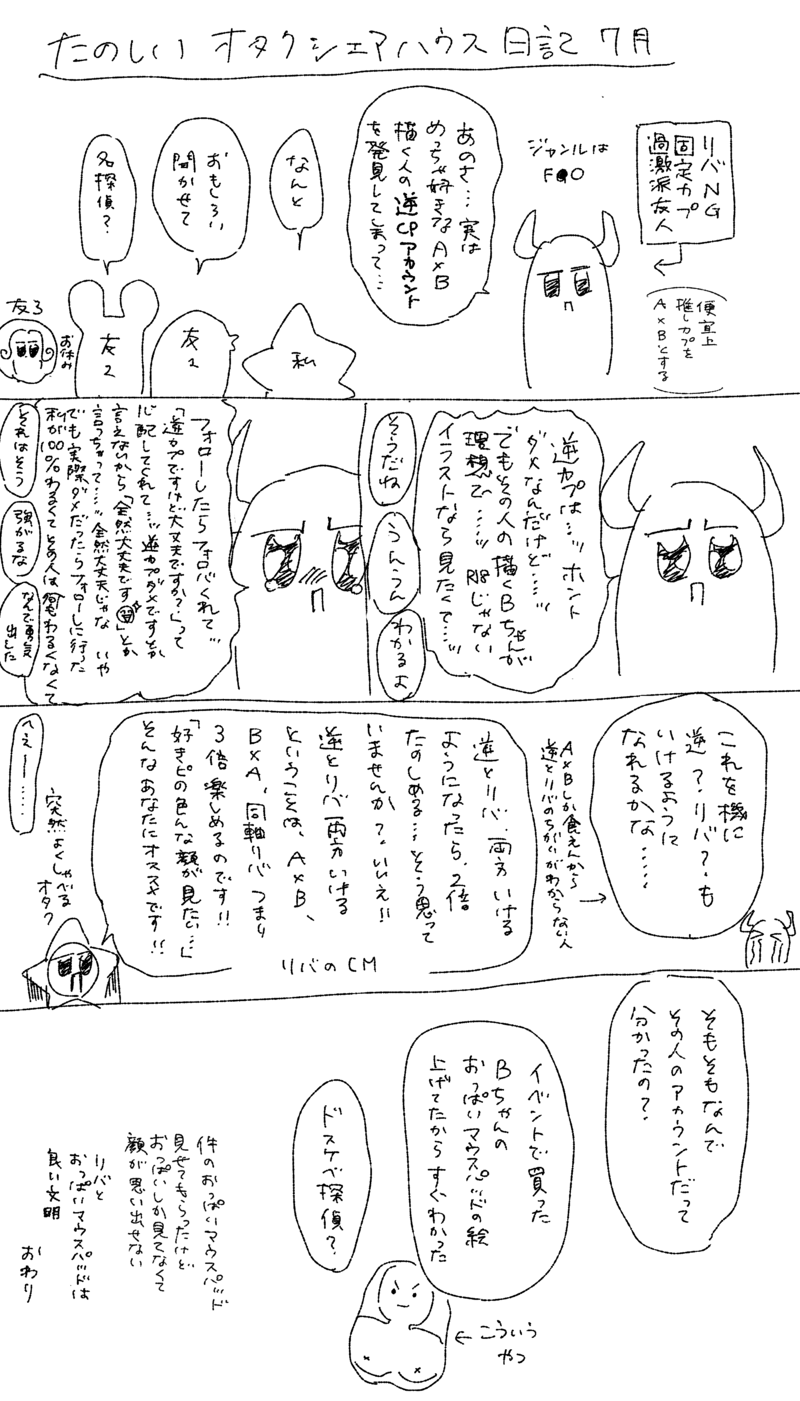 たのしい オタクシェアハウス 日記 7月
リバNG
固定カプ
過激派友人
便宜上
推しカプを
A×Bとする
ジャンルは
F●O
あのさ…実は
めっちゃ好きなA×B
描く人の逆CPアカウント
を発見して笑って…
なんと
おもしろい
聞かせて
名探偵?
私
友1
友2
お休み
友3
逆カプは…ッ ホント
ダメなんだけど……ッ
でもその人の描くBちゃんが
理想で……ッ R18じゃない
イラストなら見たくて…ッ
そうだね
うんうん
わかるよ
フォローしたらフォロバくれて…ッ
「逆カプですけど大丈夫ですか?」って
心配してくれて…ッ逆カプダメですとか
言えないから「全然大丈夫です」とか
言っちゃって……ッ全然大丈夫じゃな いや
でも実際ダメだったらフォローしに行った
私が100%わるくてその人は何もわるくなくて
それはそう
強がるな
なんで勇気
出した
これを機に
逆?リバ?も
いけるように
なれるかな……
A×Bしか食えんから
逆とリバのちがいがわからない人
逆とリバ、両方いける
ようになったら、2倍
たのしめる…そう思って
いませんか?いいえ!!
逆とリバ両方いける
ということは、A×B、
B×A、同軸リバ つまり
3倍楽しめるのです!!
「好きピの色んな顔が見たい…」
そんなあなたにオススメです!!
リバのCM
へぇー……
突然よくしゃべる
オタク
そもそもなんで
その人のアカウントだって
分かったの?
イベントで買った
Bちゃんの
おっぱいマウスパッドの絵
上げてたからすぐわかった
ドスケベ探偵?
こういう
やつ
件のおっぱいマウスパッド
見せてもらったけど
おっぱいしか見てなくて
顔が思い出せない
リバと
おっぱいマウスパッドは
良い文明
おわり